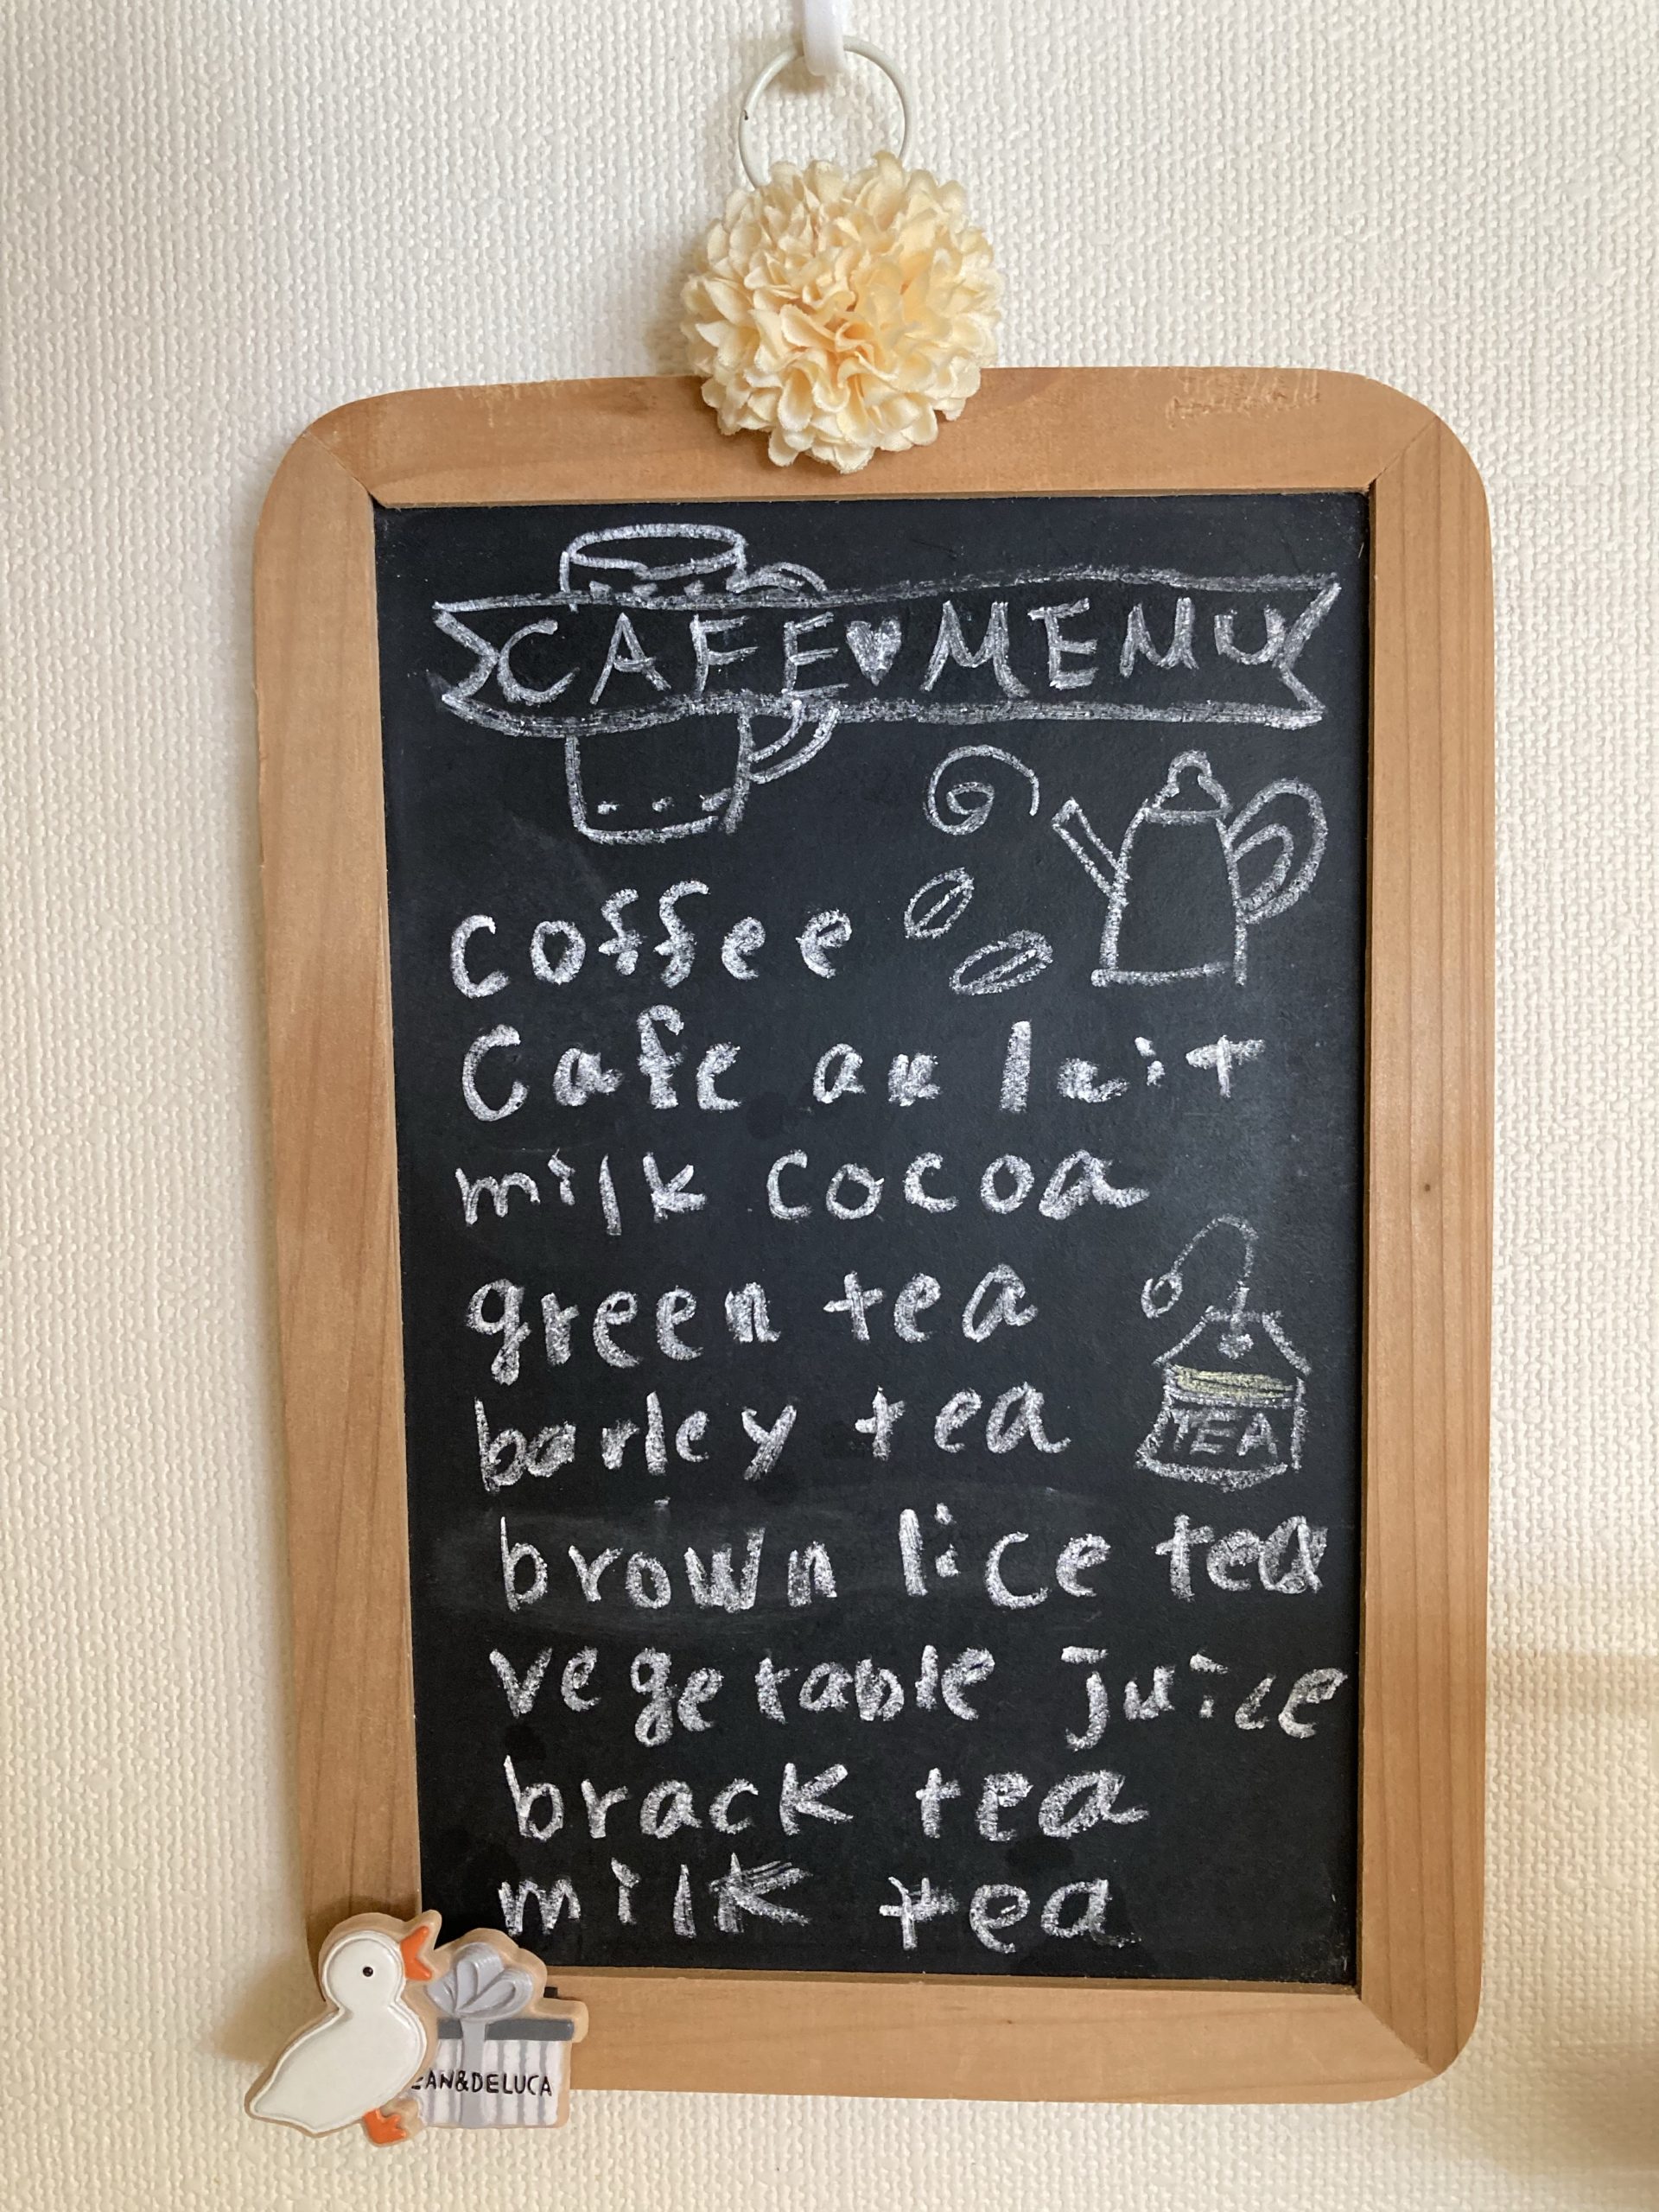 CAFE♥MENU
coffee
Cafe au lait
milk cocoa
green tea
TEA
barley tea
brown lice tea
vegetable juice
brack tea
milk tea
EAN&DELUCA